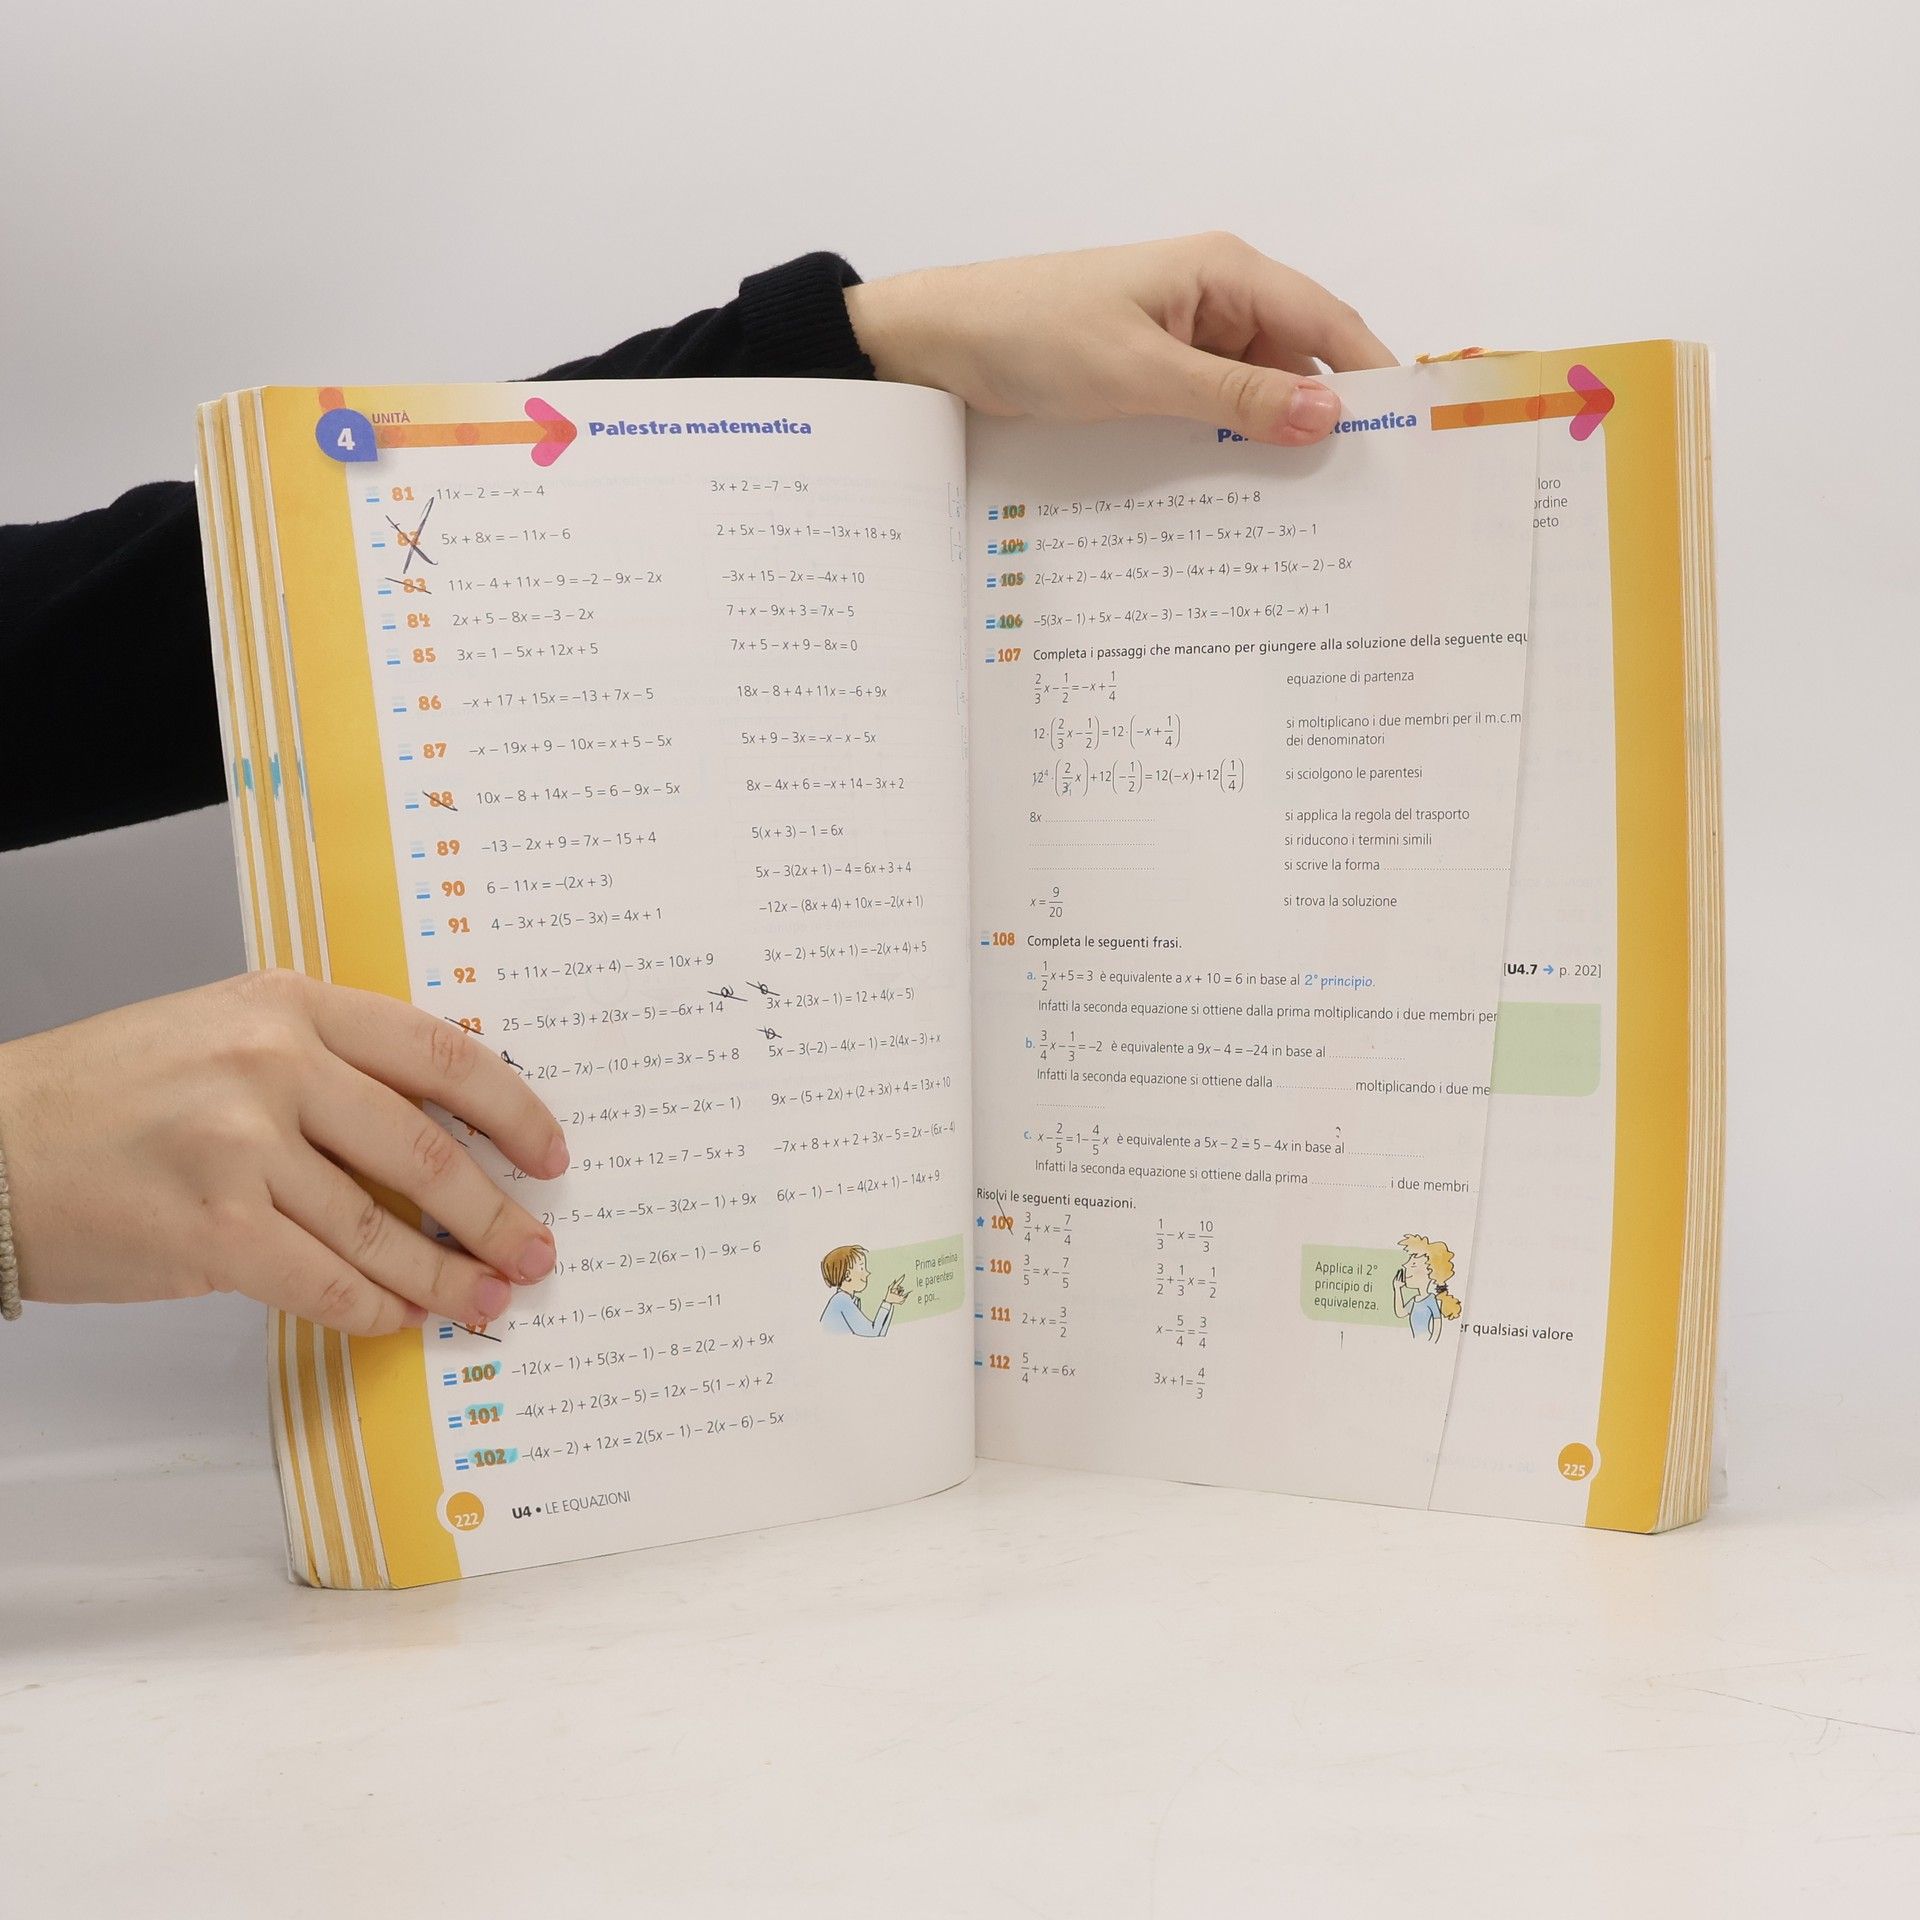 UNITÀ
4
Palestra matematica
81 11x – 2 = –x – 4 3x + 2 = –7 – 9x
82 5x + 8x = – 11x – 6 2 + 5x – 19x + 1 = –13x + 18 + 9x
83 11x – 4 + 11x – 9 = –2 – 9x – 2x –3x + 15 – 2x = –4x + 10
84 2x + 5 – 8x = –3 – 2x 7 + x – 9x + 3 = 7x – 5
85 3x = 1 – 5x + 12x + 5 7x + 5 – x + 9 – 8x = 0
86 –x + 17 + 15x = –13 + 7x – 5 18x – 8 + 4 + 11x = –6 + 9x
87 –x – 19x + 9 – 10x = x + 5 – 5x 5x + 9 – 3x = –x – x – 5x
88 10x – 8 + 14x – 5 = 6 – 9x – 5x 8x – 4x + 6 = –x + 14 – 3x + 2
89 –13 – 2x + 9 = 7x – 15 + 4 5(x + 3) – 1 = 6x
90 6 – 11x = –(2x + 3) 5x – 3(2x + 1) – 4 = 6x + 3 + 4
91 4 – 3x + 2(5 – 3x) = 4x + 1 –12x – (8x + 4) + 10x = –2(x + 1)
92 5 + 11x – 2(2x + 4) – 3x = 10x + 9 3(x – 2) + 5(x + 1) = –2(x + 4) + 5
93 25 – 5(x + 3) + 2(3x – 5) = –6x + 14 a b 3x + 2(3x – 1) = 12 + 4(x – 5)
+ 2(2 – 7x) – (10 + 9x) = 3x – 5 + 8 5x – 3(–2) – 4(x – 1) = 2(4x – 3) + x
– 2) + 4(x + 3) = 5x – 2(x – 1) 9x – (5 + 2x) + (2 + 3x) + 4 = 13x + 10
– 9 + 10x + 12 = 7 – 5x + 3 –7x + 8 + x + 2 + 3x – 5 = 2x – (6x – 4)
2) – 5 – 4x = –5x – 3(2x – 1) + 9x 6(x – 1) – 1 = 4(2x + 1) – 14x + 9
) + 8(x – 2) = 2(6x – 1) – 9x – 6
x – 4(x + 1) – (6x – 3x – 5) = –11
Prima elimina
le parentesi
e poi...
100 –12(x – 1) + 5(3x – 1) – 8 = 2(2 – x) + 9x
101 –4(x + 2) + 2(3x – 5) = 12x – 5(1 – x) + 2
102 –(4x – 2) + 12x = 2(5x – 1) – 2(x – 6) – 5x
222 U4 • LE EQUAZIONI
Pa tematica
103 12(x – 5) – (7x – 4) = x + 3(2 + 4x – 6) + 8
104 3(–2x – 6) + 2(3x + 5) – 9x = 11 – 5x + 2(7 – 3x) – 1
105 2(–2x + 2) – 4x – 4(5x – 3) – (4x + 4) = 9x + 15(x – 2) – 8x
106 –5(3x – 1) + 5x – 4(2x – 3) – 13x = –10x + 6(2 – x) + 1
107 Completa i passaggi che mancano per giungere alla soluzione della seguente equ
2/3 x – 1/2 = –x + 1/4 equazione di partenza
12·(2/3 x – 1/2) = 12·(–x + 1/4) si moltiplicano i due membri per il m.c.m
dei denominatori
12⁴·(2/3₁ x) + 12(–1/2) = 12(–x) + 12(1/4) si sciolgono le parentesi
8x .............................. si applica la regola del trasporto
.................................. si riducono i termini simili
.................................. si scrive la forma ..............................
x = 9/20 si trova la soluzione
108 Completa le seguenti frasi.
a. 1/2 x + 5 = 3 è equivalente a x + 10 = 6 in base al 2° principio.
Infatti la seconda equazione si ottiene dalla prima moltiplicando i due membri per
b. 3/4 x – 1/3 = –2 è equivalente a 9x – 4 = –24 in base al ....................
Infatti la seconda equazione si ottiene dalla .................... moltiplicando i due me
....................
c. x – 2/5 = 1 – 4/5 x è equivalente a 5x – 2 = 5 – 4x in base al ....................
Infatti la seconda equazione si ottiene dalla prima .................... i due membri
Risolvi le seguenti equazioni.
109 3/4 + x = 7/4 1/3 – x = 10/3
110 3/5 = x – 7/5 3/2 + 1/3 x = 1/2
111 2 + x = 3/2 x – 5/4 = 3/4
112 5/4 + x = 6x 3x + 1 = 4/3
Applica il 2°
principio di
equivalenza.
loro
ordine
peto
[U4.7 → p. 202]
er qualsiasi valore
225